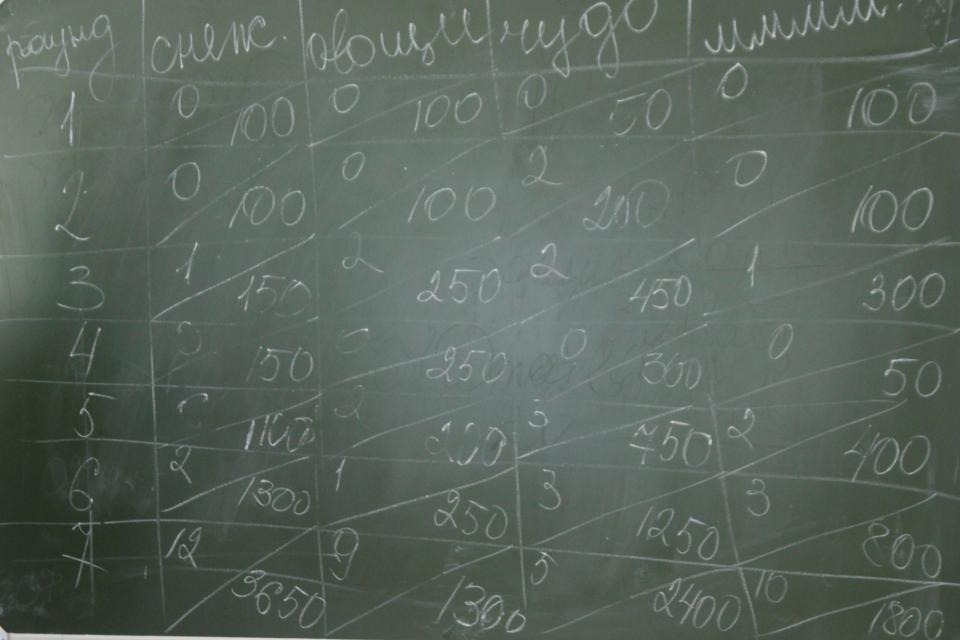 раунд снеж. овощи чудо ммми.
1 0 100 0 100 0 50 0 100
2 0 100 0 100 2 200 0 100
3 1 150 2 250 2 450 1 300
4 0 150 0 250 0 300 0 50
5 0 1100 2 200 3 750 2 400
6 2 1300 1 250 3 1250 3 800
7 12 3650 9 1300 5 2400 10 1800